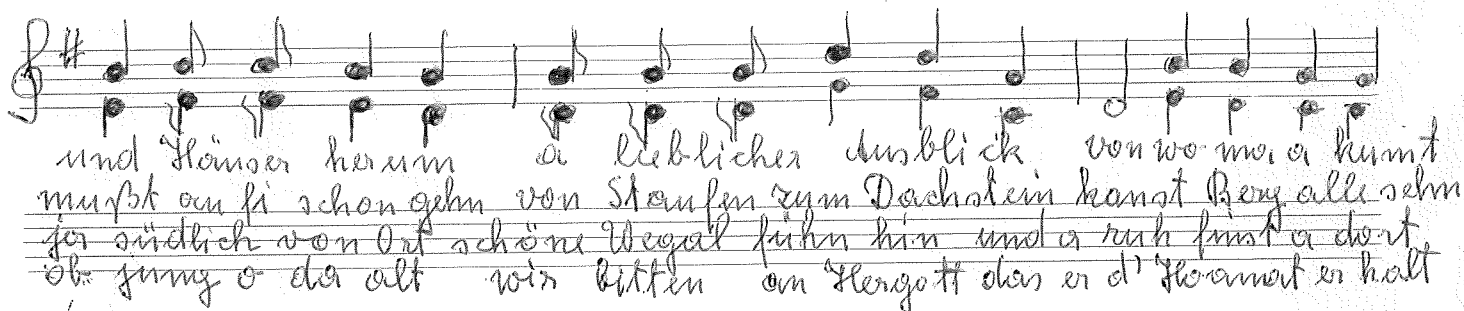 und Häuser herum a lieblicher Ausblick von wo ma a kumt
mußt au fi schon gehn von Staufen zum Dachstein kanst Berg alle sehn
ja südlich von Ort schöne Wegal führn hin und a ruh finst a dort
ob jung o da alt wir bitten an Hergott das er d' Hoamat er halt